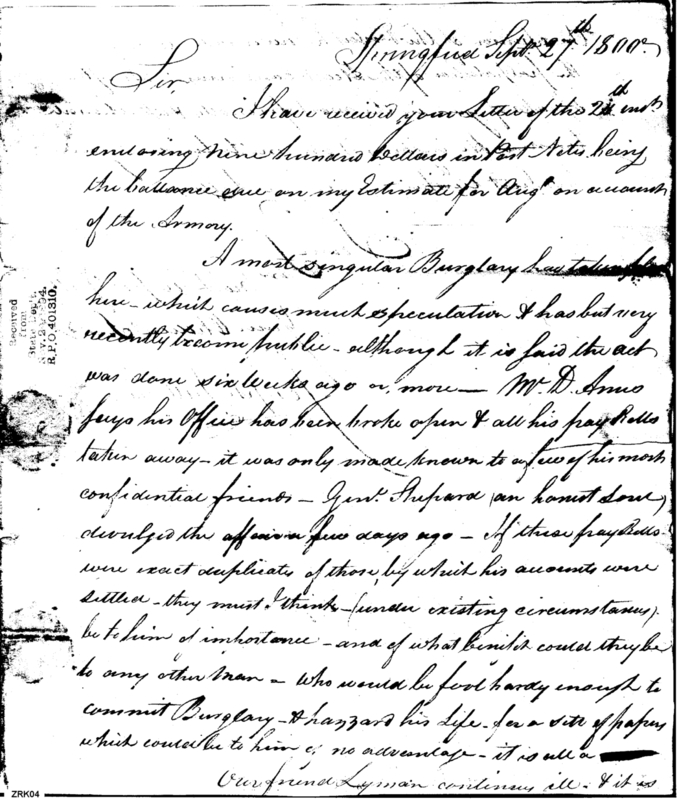 Springfield Sept. 27th 1800.
Sir,
I have received your Letter of the 2d inst.
enclosing Nine hundred Dollars in Post Notes being
the ballance due on my Estimate for Augt. on account
of the Armory.
A most singular Burglary has taken place
here - which causes much speculation & has but very
recently become public - although it is said the act
was done six weeks ago or more - Mr. D. Ames
says his Office has been broke open & all his pay Rolls
taken away - it was only made known to a few of his most
confidential friends - Genl. Shepard (an honest Soul)
divulged the affair a few days ago - If these pay Rolls
were exact duplicates of those, by which his accounts were
settled - they must I think - (under existing circumstances)
be to him of importance - and of what benifit could they be
to any other Man - who would be fool hardy enough to
commit Burglary - & hazzard his Life - for a sett of papers
which could be to him of no advantage - it is all a
Our friend Lyman continues ill - & it is
Received
from
State Dep't.
R.P.O. 401310.
ZRK04